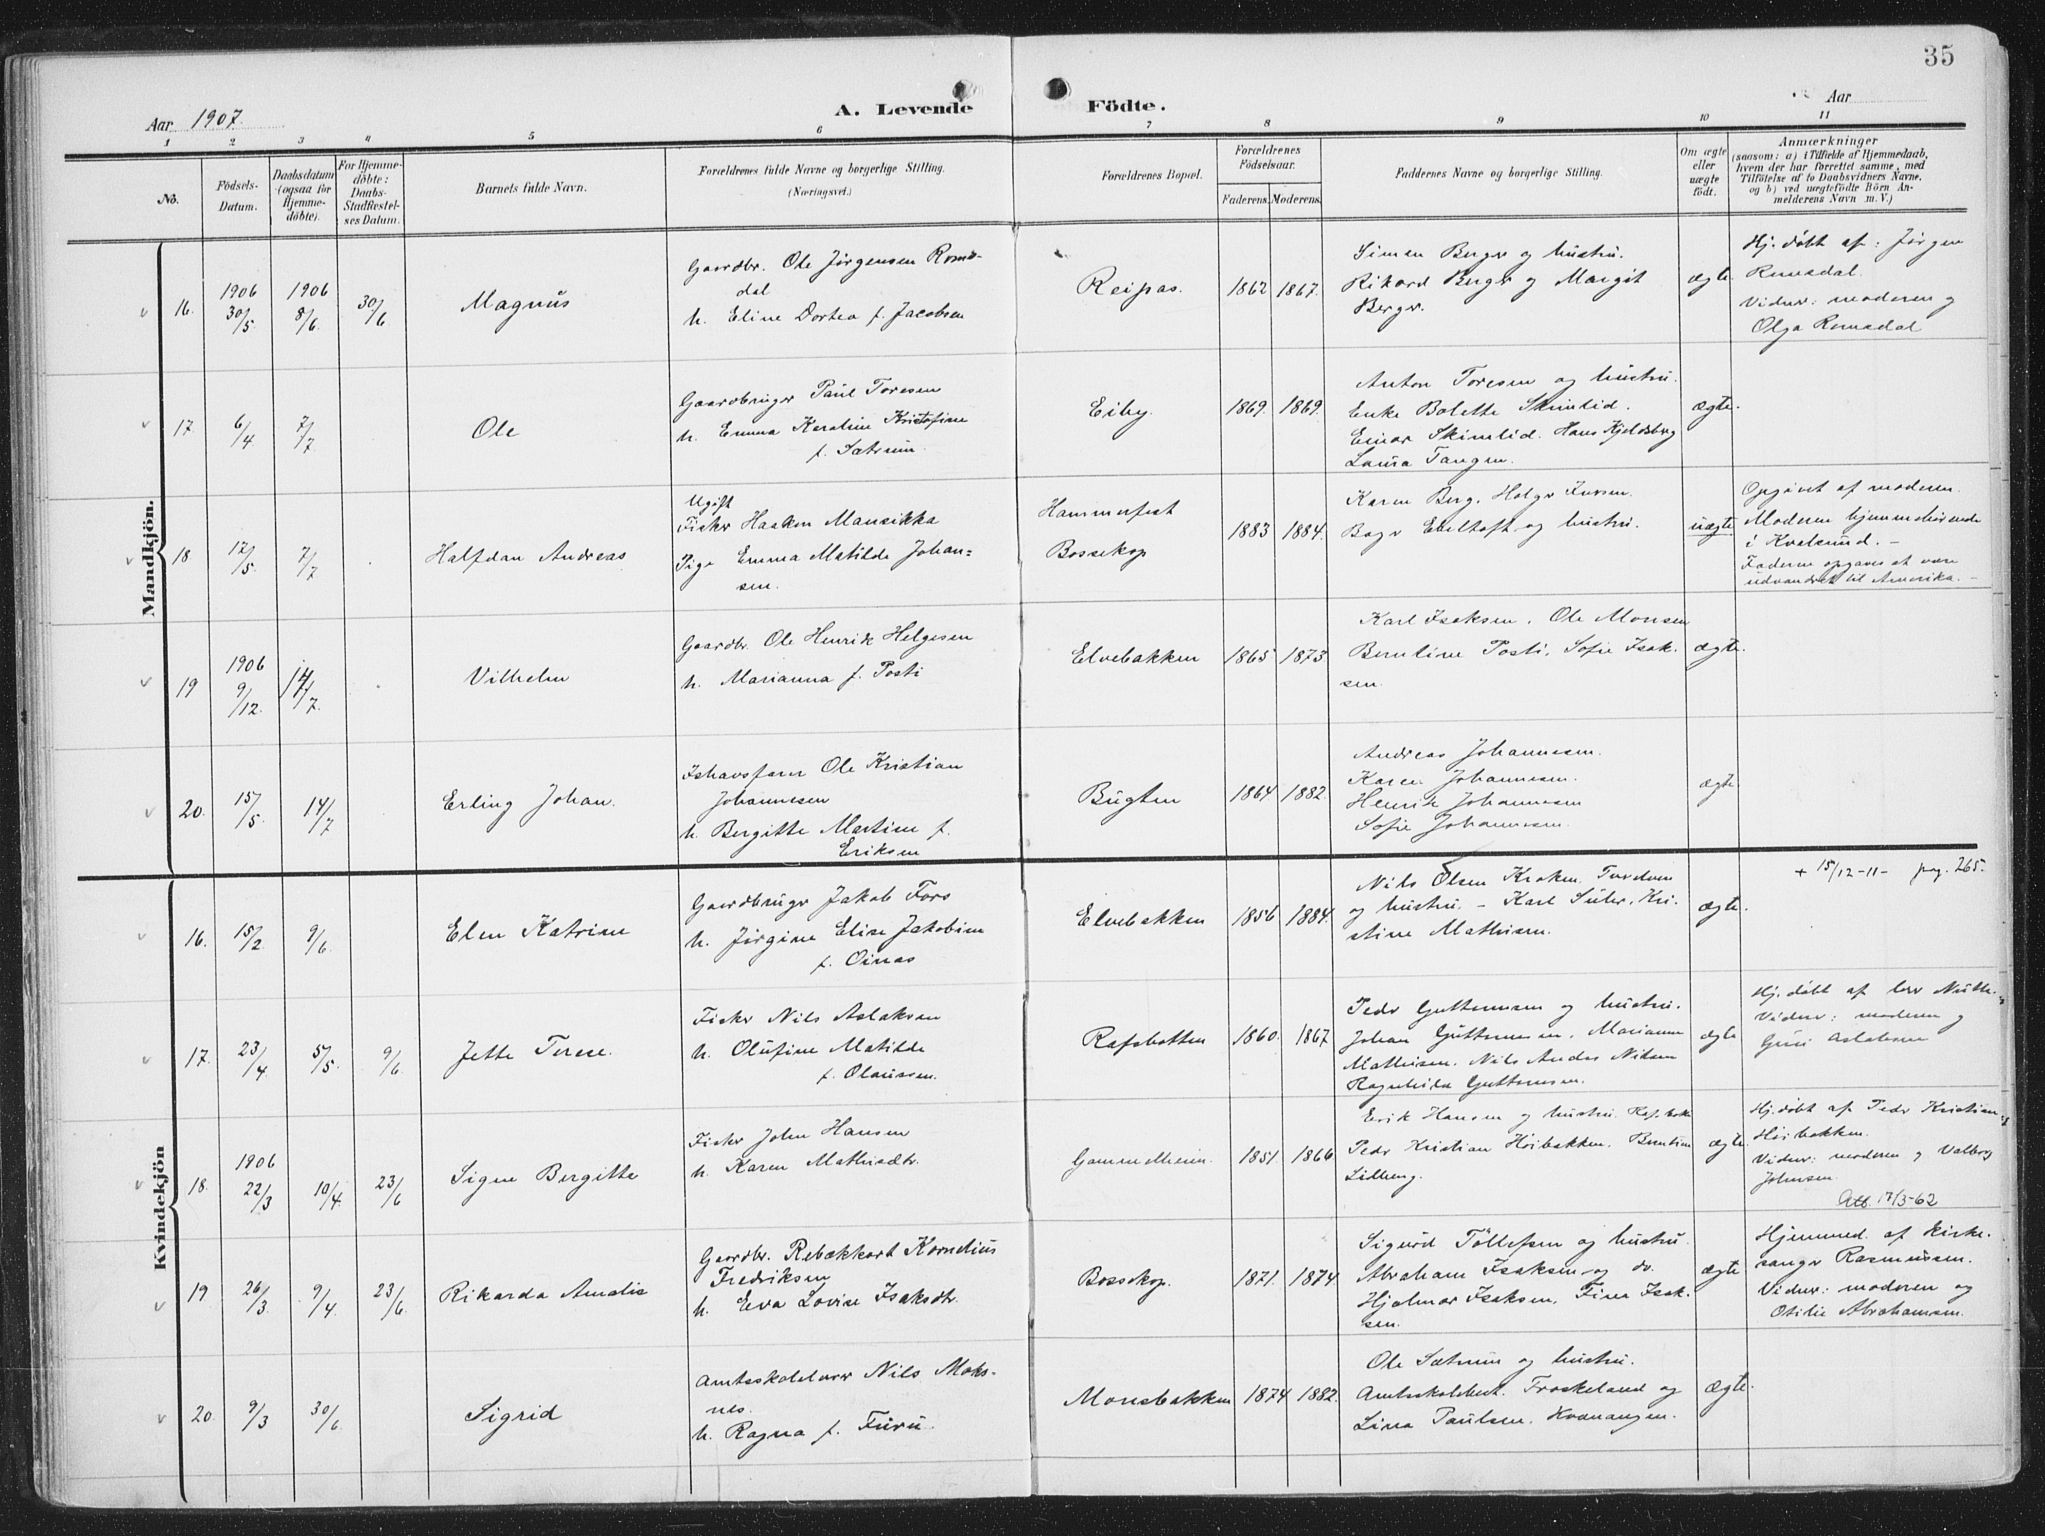 35
Aar 1907.
A. Levende Födte.
Aar
1 2 3 4 5 6 7 8 9 10 11
No.
Födsels-Datum.
Daabsdatum (ogsaa for Hjemme-döbte).
For Hjemme-döbte: Daabs-Stadfæstel-ses Datum.
Barnets fulde Navn.
Forældrenes fulde Navne og borgerlige Stilling. (Næringsvei.)
Forældrenes Bopæl.
Forældrenes Födselsaar.
Faderens. Moderens.
Faddernes Navne og borgerlige Stilling.
Om ægte eller uægte födt.
Anmærkninger
(saasom: a) i Tilfælde af Hjemmedaab,
hvem der har forrettet samme, med
Tilföielse af to Daabsvidners Navne,
og b) ved uægtefödte Börn An-
melderens Navn m. V.)
Mandkjön.
16. 1906 30/5 1906 8/6 30/6 Magnus
Gaardbr. Ole Jørgensen Roms-
dal
h. Eline Dortea f. Jacobsen
Reipas. 1862 1867.
Simen Berger og hustru.
Rikard Berger og Margit
Berger.
ægte.
Hj. døbt af: Jørgen
Romsdal.
Vidner: moderen og
Olga Romsdal
17 6/4 7/7 Ole
Gaardbruger Paul Toresen
h. Emma Karoline Kristofine
f. Sætrum.
Eiby. 1869. 1869.
Anton Toresen og hustru.
Enke Bolette Skimlid.
Einar Skimlid. Hans Kjeldsberg
Laura Tangen.
ægte.
18 17/5 7/7 Halfdan Andreas
Ugift
Fisker Haakon Mansikka
Pige Emma Matilde Johan-
sen.
Hammerfest
Bossekop 1883 1884.
Karen Berg. Holger Iversen.
Bager Ebeltoft og hustru.
uægte
Opgivet af moderen.
Moderen hjemmehørende
i Kvalsund. -
Faderen opgaves at være
udvandret til Amerika. -
19 1906 9/12. 14/7. Vilhelm
Gaardbr. Ole Henrik Helgesen
h. Marianna f. Posti
Elvebakken 1865 1873
Karl Isaksen. Ole Monsen
Berntine Posti. Sofie Isak-
sen.
ægte.
20. 15/5 14/7 Erling Johan.
Ishavsfarer Ole Kristian
Johannesen
h. Bergitte Martine f.
Eriksen
Bugten 1864 1882.
Andreas Johannesen.
Karen Johannesen.
Henrik Johannesen
Sofie Johannesen.
ægte.
Kvindekjön
16. 15/2 9/6. Elen Katrine
Gaardbruger Jakob Fors
h. Jørgine Elise Jakobine
f. Oinas
Elvebakken 1856 1884.
Nils Olsen Kraken
og hustru. - Karl Suhr. Kri-
stine Mathisen.
ægte.
+ 15/12-11- pag. 265.
17. 23/4 5/5 9/6. Jette Terese.
Fisker Nils Aslaksen
h. Olufine Matilde
f. Olaussen.
Rafsbotten 1860. 1867
Peder Guttormsen og hustru.
Johan Guttormsen. Marianne
Mathisen. Nils Anders Nilsen
Ragnhild Guttormsen.
ægte
Hj. døbt af
Vidner: moderen og
Guri Aslaksen
18. 1906 22/3 10/4. 23/6 Signe Bergitte
Fisker John Hansen
h. Karen Mathisdtr.
Gammelheim. 1851. 1866
Erik Hansen og hustru.
Peder Kristian Høibakken. Berntine
Lidberg.
ægte.
Hj. døbt af Peder Kristian
Høibakken.
Vidner: moderen og Valborg
Johnsen.
Att. 17/3-62
19 26/3 9/4 23/6 Rikarda Amalie
Gaardbr. Rebækkart Kornelius
Fredriksen
h. Eva Lovise Isaksdtr.
Bossekop. 1871. 1874
Sigurd Töllefsen og hustru.
Abraham Isaksen og do.
Hjalmar Isaksen. Fina Isak-
sen.
ægte
Hjemmed. af Kirke-
sanger Rasmussen.
Vidner: moderen og
Otilie Abrahamsen.
20. 9/3 30/6 Sigrid
Amtsskolelærer Nils Moks-
nes.
h. Ragna f. Furu.
Monsbakken 1874 1882.
Ole Sætrum og hustru.
Amtsskolebest. Froskeland og
Lina Paulsen. Kvænangen.
ægte.